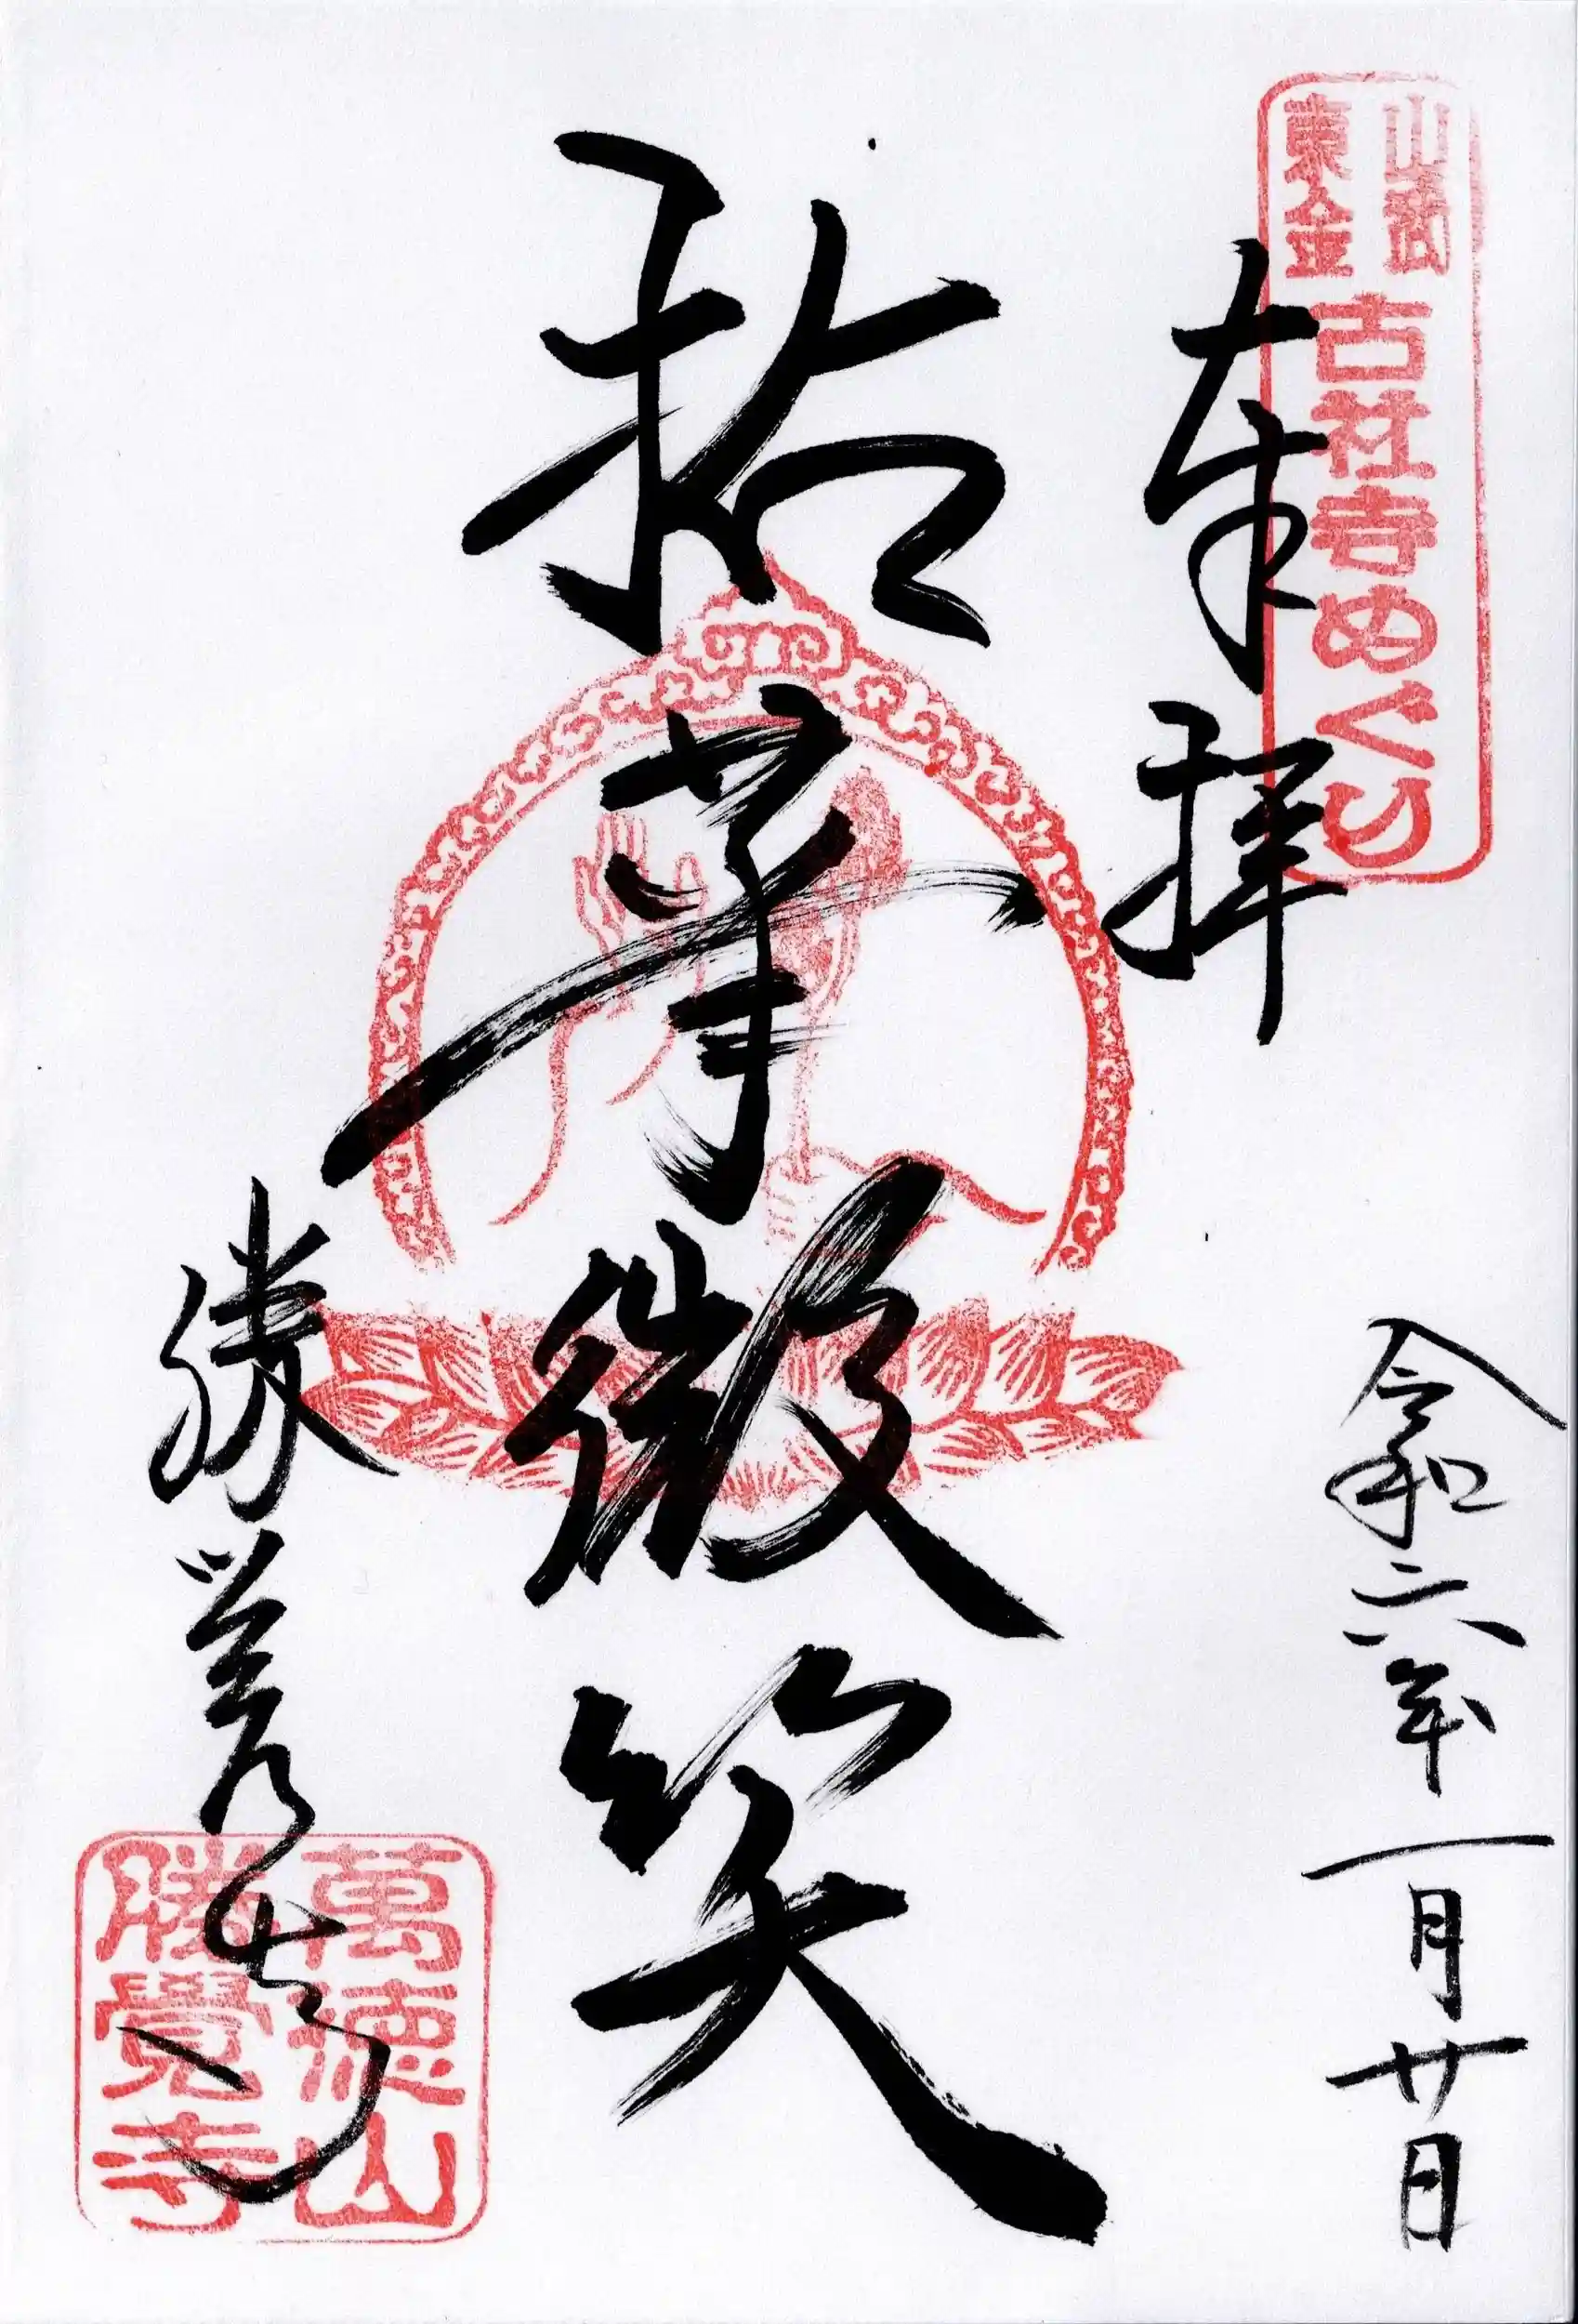 山武
東金
古社寺めぐり
奉拝
令和六年一月廿日
拈華微笑
勝覚寺
萬徳山
勝覺寺